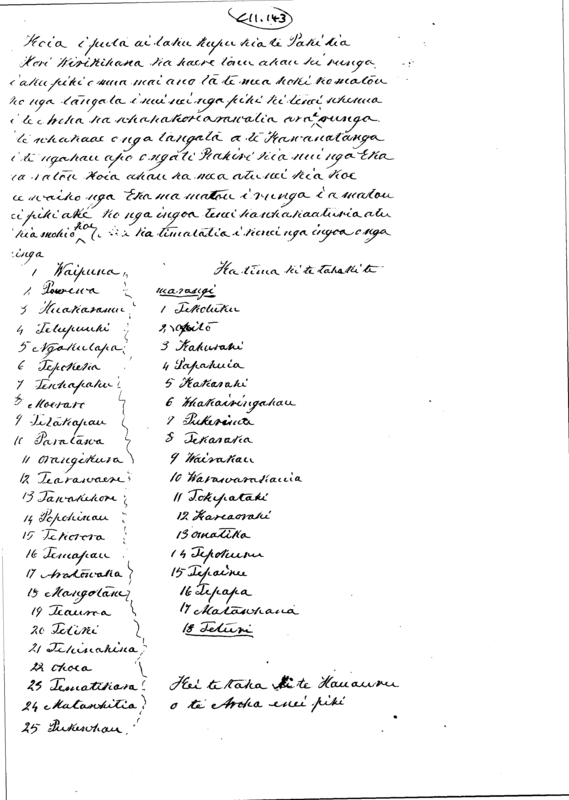 C11.143
Koia i puta ai taku kupu kia te Paki kia
Hori Kirikihana ka haere tonu ahau ki runga
i aku piki o mua mai ano tā te mea hoki ko matou
ko nga tāngata i mui nei nga piki ki tenei whenua
i te Aroha ka whakakorea ara runga
te whakaae o nga tangata a te Kawanatanga
i te ngahau apo o ngati Kahiri kia nui nga Eka
ia ratou Koia ahau ka mea atu nei kia koe
e waiho nga Eka ma matou i runga i a matou
ei piki ake ko nga ingoa tenei ka whakaaturia atu
kia mohio koe ka timatatia i konei nga ingoa o nga
inga
1 Waipuna
2 Powewa
3 Huakaramu
4 Tetupuuki
5 Ngakutapa
6 Tepokeha
7 Tewhapahu
8 Moerare
9 Titākapau
10 Paratawa
11 Orangikura
12 Tearawaere
13 Tawakehore
14 Popohinau
15 Tekorora
16 Temapau
17 Aratowaka
18 Mangotāne
19 Teaurra
20 Tetiki
21 Tehinahina
22 Ohoca
23 Tematikara
24 Matawhitia
25 Pukewhau
Ka tima ki te taha ki te
marangi
1 Tekotuku
2 Opitō
3 Kakuraki
4 Papahuia
5 Kakaraki
6 Whakairingahau
7 Pukerimu
8 Tekaraka
9 Wairakau
10 Warawarakauia
11 Tokipataki
12 Kareaoraki
13 Omatika
14 Tepokuru
15 Tepainu
16 Tepapa
17 Matāwhana
18 Teturi
Hei te taha ki te Hauauru
o te Aroha enei piki